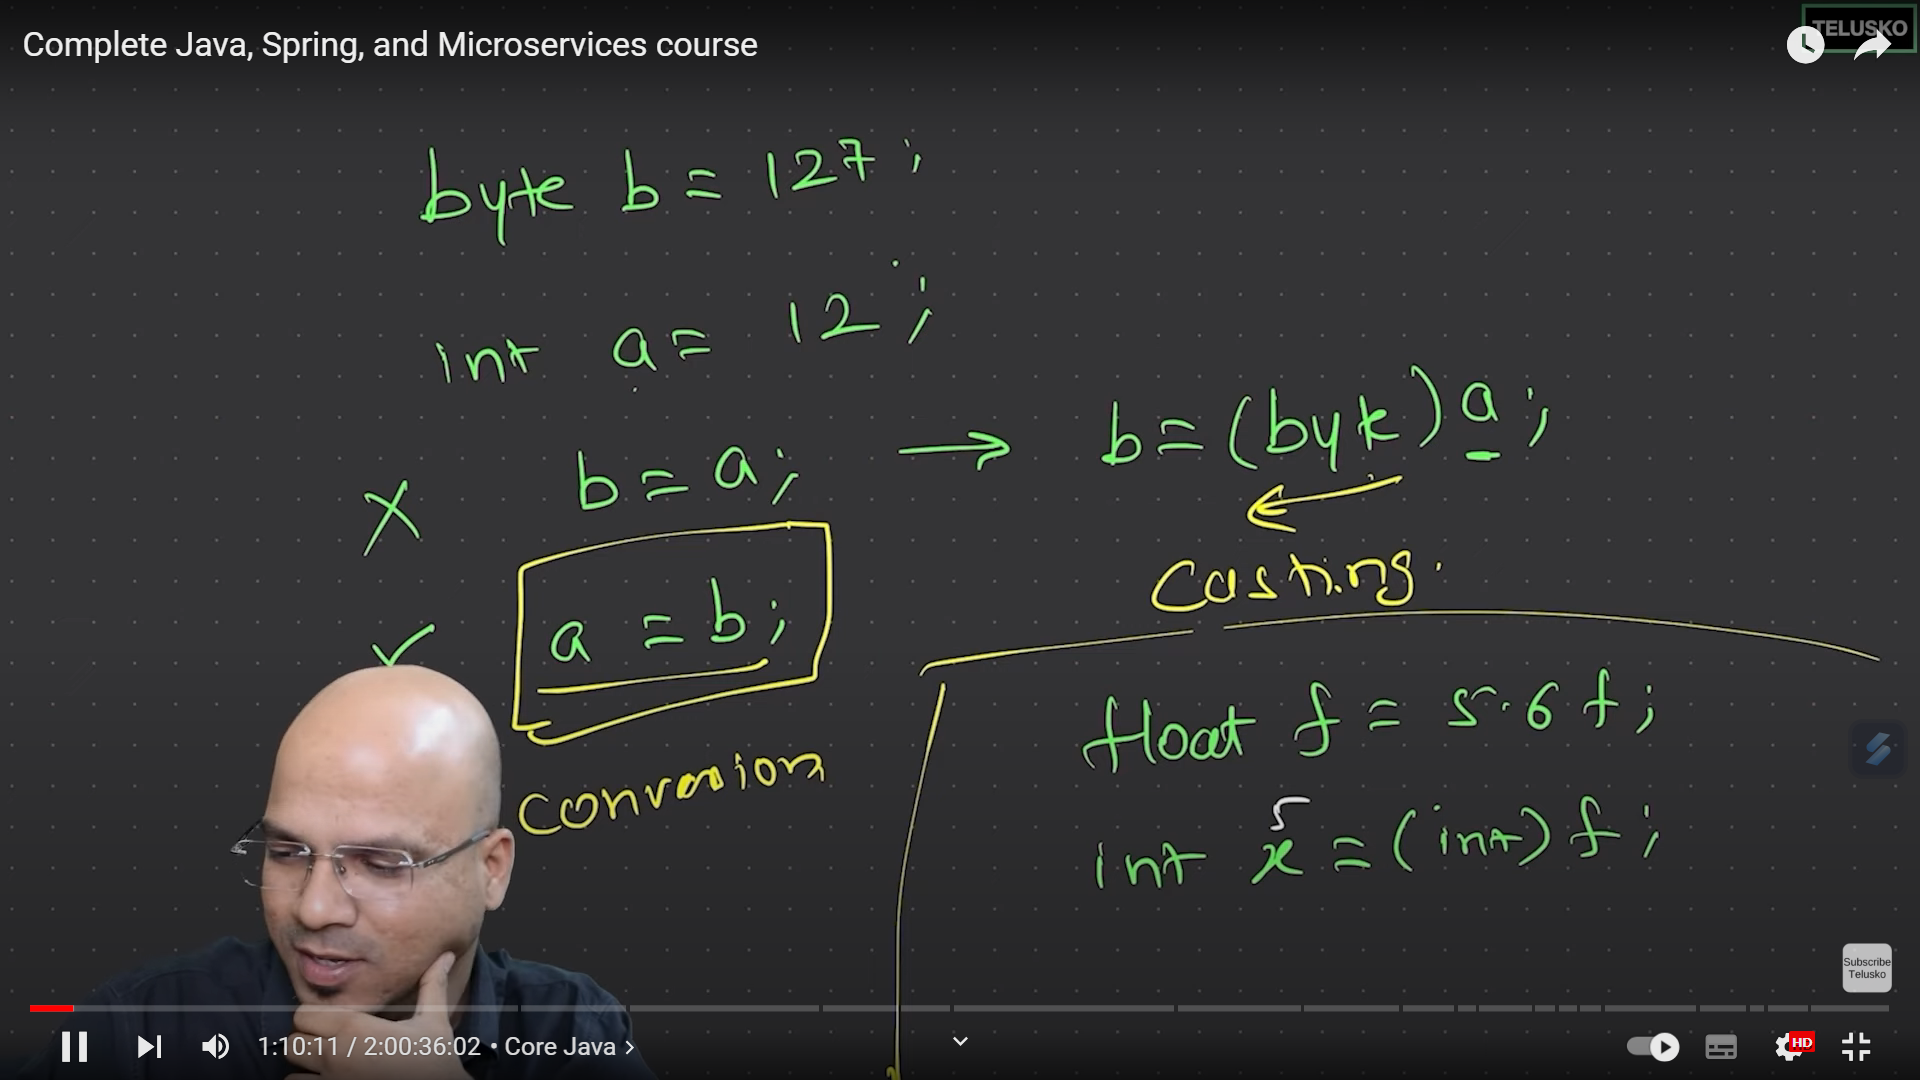 Complete Java, Spring, and Microservices course
TELUSKO
byte b = 127;
int a = 12;
b = a; → b = (byte) a;
X
Casting.
✓ a = b;
Conversion
float f = 5.6f;
5
int x = (int) f;
Subscribe
Telusko
1:10:11 / 2:00:36:02 • Core Java >
HD